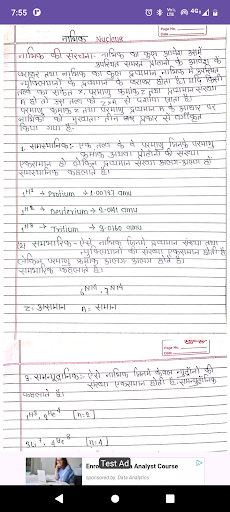 7:55
4G
71%
नाभिक Nucleus
नाभिक की संरचना:- नाभिक का कुल आवेश उसमें
उपस्थित समस्त प्रोटानों के आवेश के
बराबर तथा नाभिक का कुल द्रव्यमान नाभिक में उपस्थित
न्यूक्लियानों के द्रव्यमान के बराबर होता है। यदि किसी
तत्व का संकेत X, परमाणु क्रमांक Z तथा द्रव्यमान संख्या
A हो तो उस तत्व को ZXA से दर्शाया जाता है।
परमाणु क्रमांक Z तथा परमाणु द्रव्यमान के आधार पर
नाभिकों को मुख्यतः तीन प्रकार से वर्गीकृत
किया गया है-
1. समस्थानिक:- एक तत्व के वे परमाणु जिनके परमाणु
क्रमांक अथवा प्रोटानों की संख्या
एकसमान हो लेकिन द्रव्यमान संख्या अलग-अलग हो
समस्थानिक कहलाते हैं।
1H1 → Protium → 1.00737 amu
1H2 → Deuterium → 2.041 amu
1H3 → Tritium → 3.0160 amu
(2) समभारिक:- ऐसे नाभिक जिनमें द्रव्यमान संख्या तथा
न्यूक्लियानों की संख्या एकसमान होती है
लेकिन परमाणु क्रमांक अलग अलग होते हैं।
समभारिक कहलाते हैं।
6N14, 7N14
Z = असमान A = समान
Page No.
Date
3. समन्यूट्रानिक:- ऐसे नाभिक जिनमें केवल न्यूट्रानों की
संख्या एकसमान होती है, समन्यूट्रानिक
कहलाते हैं।
1H3, 2He4 [n=2]
3Li7, 4Be8 [n=4]
Test Ad
Enro
Analyst Course
sponsored by: Data Analytics